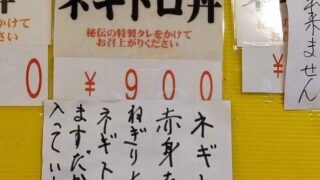 ネギトロ丼
秘伝の特製タレをかけて
お召上がりください
¥900
ネギト
赤身を
ねぎりと
ネギスト
ますだが
入ってい
0
来ません